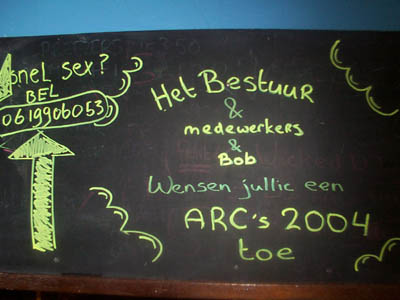 snel sex?
BEL
0619906053
Het Bestuur
&
medewerkers
&
Bob
Wensen jullie een
ARC's 2004
toe